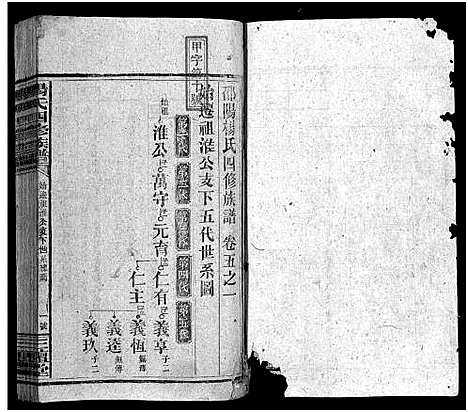 甲字第十號
邵陽楊氏四修族譜 卷五之一
始遷祖淮公支下五代世系圖
第一代
第二代
第三代
第四代
第五代
始祖
淮公
萬守
元育
仁有
義享 子二
義恆 無傳
仁主
義逵 無傳
義玖 子二
楊氏四修族譜
始遷祖淮公支下世系圖
一號